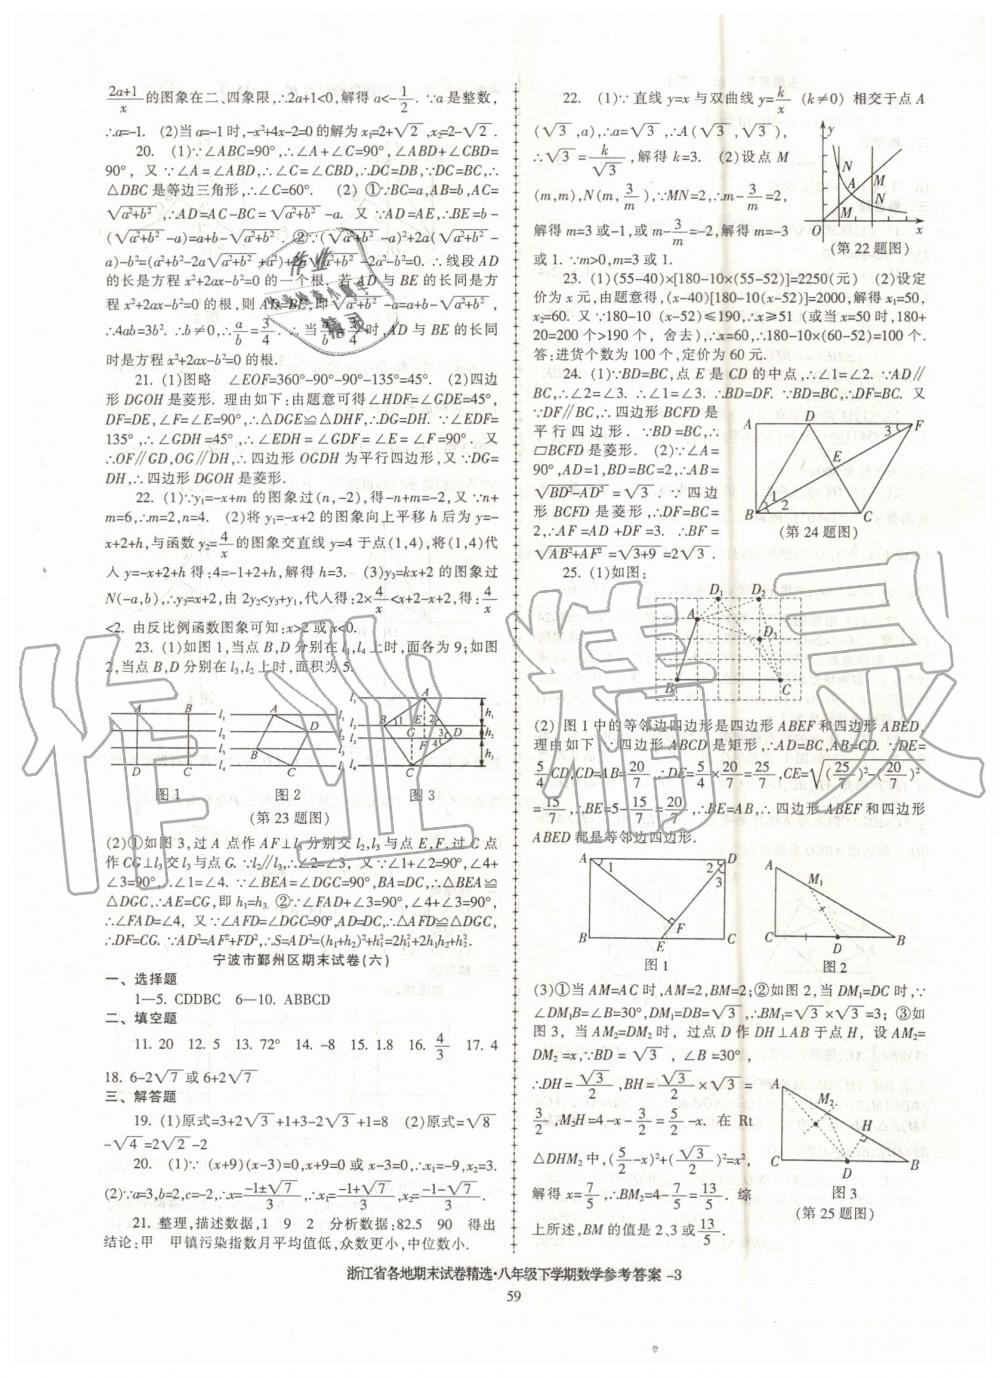 2a+1/x 的图象在二、四象限,∴2a+1<0,解得 a<-1/2. ∵a 是整数,
∴a=-1. (2)当 a=-1 时,-x²+4x-2=0 的解为 x₁=2+√2,x₂=2-√2.
20. (1)∵∠ABC=90°,∴∠A+∠C=90°,∠ABD+∠CBD=
90°,又∵∠A=∠ABD,∴∠C=∠CBD,∴DC=DB,∵DC=BC,∴
△DBC 是等边三角形,∴∠C=60°. (2) ①∵BC=a,AB=b,AC=
√a²+b²,∴AD=AC-BC=√a²+b²-a. 又∵AD=AE,∴BE=b-
(√a²+b²-a)=a+b-√a²+b². ②∵(√a²+b²-a)²+2a(√a²+b²-
a)-b²=(a²+b²-2a√a²+b²+a²)+2a√a²+b²-2a²-b²=0. ∴线段 AD
的长是方程 x²+2ax-b²=0 的一个根. 若 AD 与 BE 的长同是方
程 x²+2ax-b²=0 的根,则 AD=BE,即√a²+b²-a=a+b-√a²+b²,
∴4ab=3b². ∵b≠0,∴a/b=3/4. ∴当 a/b=3/4 时,AD 与 BE 的长同
时是方程 x²+2ax-b²=0 的根.
21. (1)图略 ∠EOF=360°-90°-90°-135°=45°. (2)四边
形 DGOH 是菱形. 理由如下:由题意可得∠HDF=∠GDE=45°,
DF=DE,∠F=∠E=90°,∴△DGE≌△DHF,∴DG=DH. ∵∠EDF=
135°,∴∠GDH=45°,∴∠EDH=∠GDF=∠E=∠F=90°. 又
∵OF∥GD,OG∥DH,∴四边形 OGDH 为平行四边形,又∵DG=
DH,∴四边形 DGOH 是菱形.
22. (1)∵y₁=-x+m 的图象过(n,-2),得-n+m=-2,又∵n+
m=6,∴m=2,n=4. (2)将 y₁=-x+2 的图象向上平移 h 后为 y=-
x+2+h,与函数 y₂=4/x 的图象交直线 y=4 于点(1,4),将(1,4)代
入 y=-x+2+h 得:4=-1+2+h,解得 h=3. (3)y₃=kx+2 的图象过
N(-a,b),∴y₃=x+2,由 2y₂<y₃+y₁,代入得:2×4/x<x+2-x+2,得:4/x
<2. 由反比例函数图象可知:x>2 或 x<0.
23. (1)如图 1,当点 B,D 分别在 l₁,l₄ 上时,面各为 9;如图
2,当点 B,D 分别在 l₃,l₂ 上时,面积为 5.
A B l₁ l₂ l₃ l₄ D C
图 1
A D B C l₁ l₂ l₃ l₄
图 2
A B E D G F C 1 2 3 4 l₁ l₂ l₃ l₄ h₁ h₂ h₃
图 3
(第 23 题图)
(2)①如图 3,过 A 点作 AF⊥l₃ 分别交 l₂,l₃ 与点 E,F,过 C 点
作 CG⊥l₃ 交 l₃ 与点 G. ∵l₂∥l₃,∴∠2=∠3, 又∵∠1+∠2=90°,∠4+
∠3=90°,∴∠1=∠4. ∵∠BEA=∠DGC=90°,BA=DC,∴△BEA≌
△DGC,∴AE=CG,即 h₁=h₃. ②∵∠FAD+∠3=90°,∠4+∠3=90°,
∴∠FAD=∠4, 又∵∠AFD=∠DGC=90°,AD=DC,∴△AFD≌△DGC,
∴DF=CG. ∵AD²=AF²+FD²,∴S=AD²=(h₁+h₂)²+h₁²=2h₁²+2h₁h₂+h₂².
宁波市鄞州区期末试卷(六)
一、选择题
1—5. CDDBC 6—10. ABBCD
二、填空题
11. 20 12. 5 13. 72° 14. -8 15. 1.8 16. 4/3 17. 4
18. 6-2√7 或 6+2√7
三、解答题
19. (1)原式=3+2√3+1+3-2√3+1=8 (2)原式=√8
-√4=2√2-2
20. (1)∵ (x+9)(x-3)=0,x+9=0 或 x-3=0,∴x₁=-9,x₂=3.
(2)∵a=3,b=2,c=-2,∴x=-1±√7/3,∴x₁=-1+√7/3,x₂=-1-√7/3.
21. 整理,描述数据,1 9 2 分析数据:82.5 90 得出
结论:甲 甲镇污染指数月平均值低,众数更小,中位数小.
22. (1)∵直线 y=x 与双曲线 y=k/x (k≠0) 相交于点 A
(√3,a),∴a=√3,∴A(√3,√3),
∴√3=k/√3,解得 k=3. (2)设点 M
(m,m),N(m,3/m),∵MN=2,∴m-3/m=2,
解得 m=3 或-1,或 m-3/m=-2,解得 m=-3
或 1. ∵m>0,m=3 或 1.
y N A M M N O x
(第 22 题图)
23. (1)(55-40)×[180-10×(55-52)]=2250(元) (2)设定
价为 x 元,由题意得,(x-40)[180-10(x-52)]=2000,解得 x₁=50,
x₂=60. 又∵180-10 (x-52)≤190,∴x≥51 (或当 x=50 时,180+
20=200 个>190 个, 舍去),∴x=60,∴180-10×(60-52)=100.
答:进货个数为 100 个,定价为 60 元.
24. (1)∵BD=BC,点 E 是 CD 的中点,∴∠1=∠2. ∵AD∥
BC,∴∠2=∠3. ∴∠1=∠3. ∴BD=DF. ∵BD=BC,∴DF=BC. 又
∵DF∥BC,∴四边形 BCFD 是
平行四边形. ∵BD=BC,∴
▱BCFD 是菱形. (2)∵∠A=
90°,AD=1,BD=BC=2,∴AB=
√BD²-AD²=√3. ∵四边
形 BCFD 是菱形,∴DF=BC=
2,∴AF=AD+DF=3. ∴BF=
√AB²+AF²=√3+9=2√3.
A D 3 F E 1 2 B C
(第 24 题图)
25. (1)如图:
D₁ D₂ A D₃ B C
(2) 图 1 中的等邻边四边形是四边形 ABEF 和四边形 ABED,
理由如下:∵四边形 ABCD 是矩形,∴AD=BC,AB=CD. ∵DE=
5/4CD,CD=AB=20/7,∴DE=5/4×20/7=25/7,CE=√(25/7)²-(20/7)²
=15/7,∴BE=5-15/7=20/7,∴BE=AB,∴四边形 ABEF 和四边形
ABED 都是等邻边四边形.
A D 1 2 3 F B E C
图 1
A M₁ C D B
图 2
(3)①当 AM=AC 时,AM=2,BM=2;②如图 2,当 DM₁=DC 时,∵
∠DM₁B=∠B=30°,DM₁=DB=√3,∴BM₁=√3×√3=3; ③如
图 3, 当 AM₂=DM₂ 时, 过点 D 作 DH⊥AB 于点 H, 设 AM₂=
DM₂=x,∵BD=√3,∠B=30°,
∴DH=√3/2,BH=√3/2×√3=
3/2,M₂H=4-x-3/2=5/2-x. 在 Rt
△DHM₂ 中,(5/2-x)²+(√3/2)²=x²,
解得 x=7/5,∴BM₂=4-7/5=13/5. 综
上所述,BM 的值是 2、3 或 13/5.
A M₂ H C D B
图 3
(第 25 题图)
浙江省各地期末试卷精选·八年级下学期数学参考答案 -3
59
作业精灵